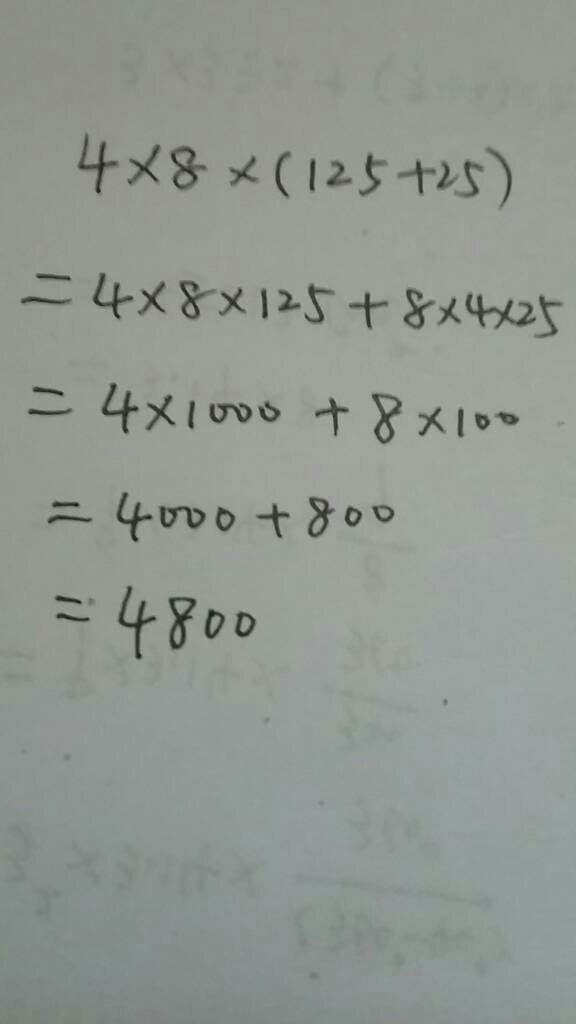 4×8×(125+25)
=4×8×125+8×4×25
=4×1000+8×100
=4000+800
=4800